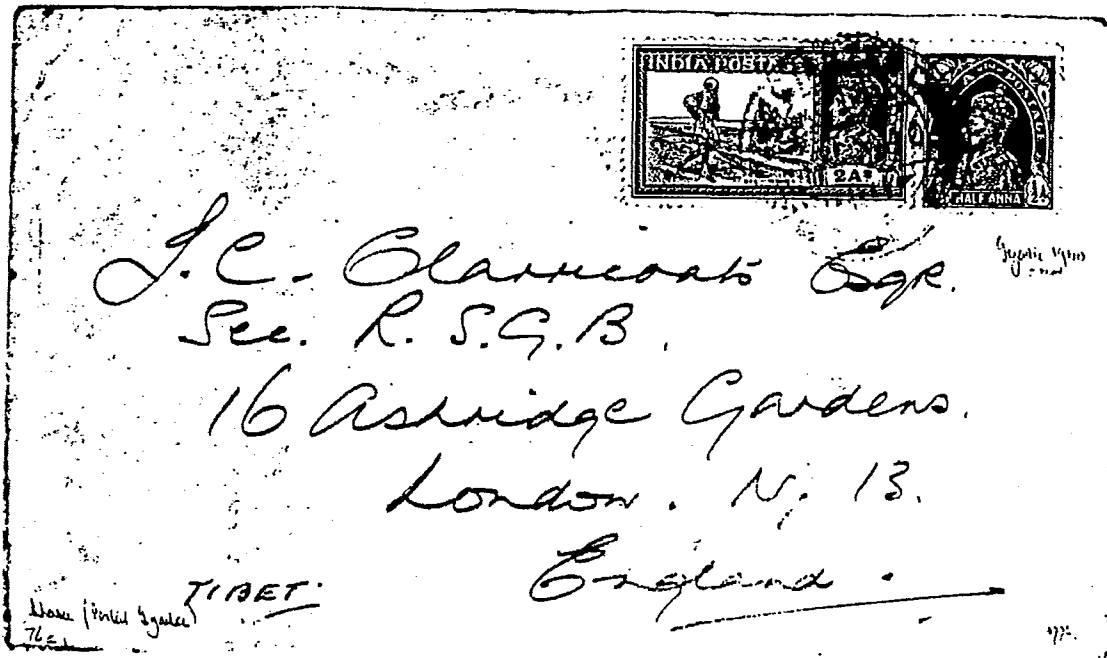 INDIA POSTAGE
2As
HALF ANNA
J.C. Clarricoats Esqr.
Sec. R.S.G.B.
16 Ashridge Gardens.
London. N. 13.
England.
TIBET.